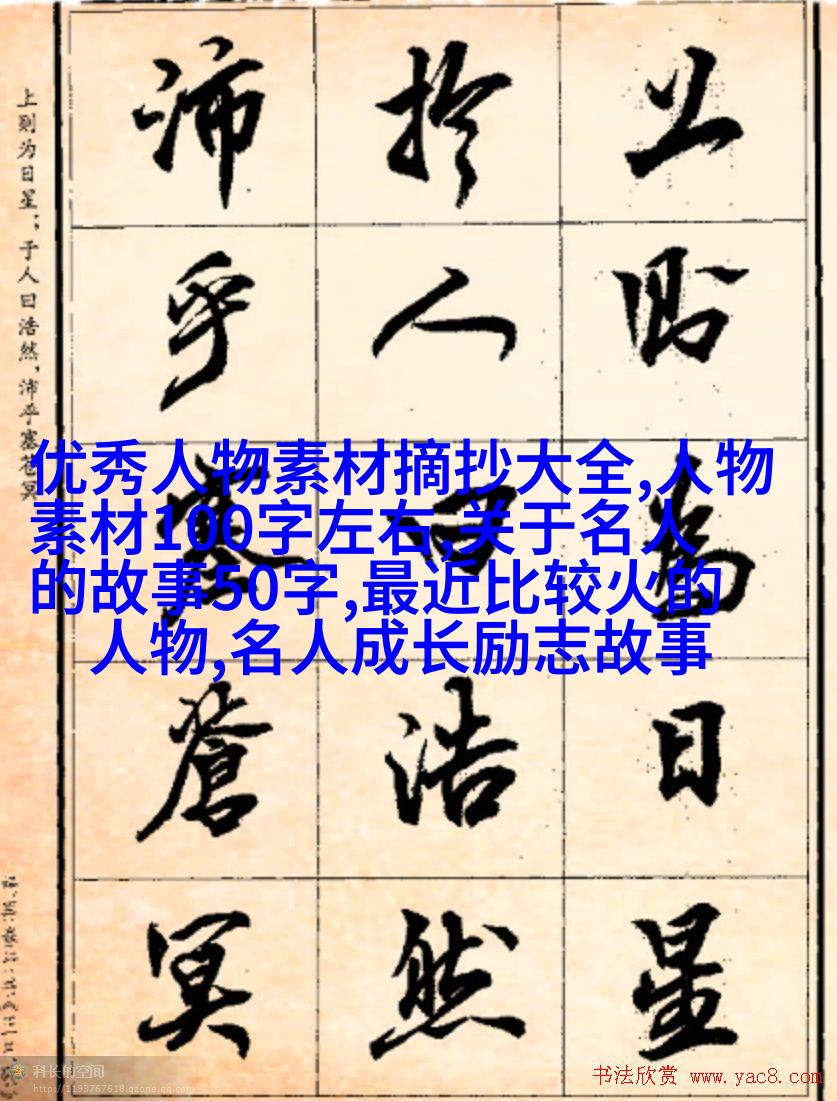 上则为日星；于人曰浩然，沛乎塞苍冥
上則為日星
扵人曰浩然
沛乎塞蒼冥
优秀人物素材摘抄大全,人物
素材100字左右,关于名人
的故事50字,最近比较火的
人物,名人成长励志故事
科长的空间
http://1193767618.qzone.qq.com
书法欣赏 www.yac8.com